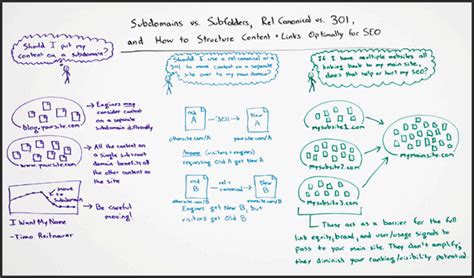 Subdomains vs. Subfolders, Rel Canonical vs. 301,
and How to Structure Content + Links Optimally for SEO
Should I put my
content on a
subdomain?
blog.yoursite.com
www.yoursite.com
→ Engines may
consider content
on a separate
subdomain differently
→ All the content
on a single sub+root
domain benefits all
the other content on
the site
move to
subdomain
→ Be Careful
moving!
I Want My Name
-Timo Reitnauer
Should I use a rel canonical or a
301 to move content on a separate
site over to my main domain?
old
A
→ 301 →
new
A
othersite.com/A
yoursite.com/A
Anyone (visitors + engines)
requesting Old A get New A
old
B
rel=canonical
new
B
othersite.com/B
yoursite.com/B
Engines get New B, but
visitors get Old B
If I have multiple websites all
linking back to my main site,
does that help or hurt my SEO?
mysubsite1.com
mysubsite2.com
mysubsite3.com
mymainsite.com
These act as a barrier for the full
link equity, brand, and user/usage signals to
pass to your main site. They don't amplify;
they diminish your ranking/visibility potential.